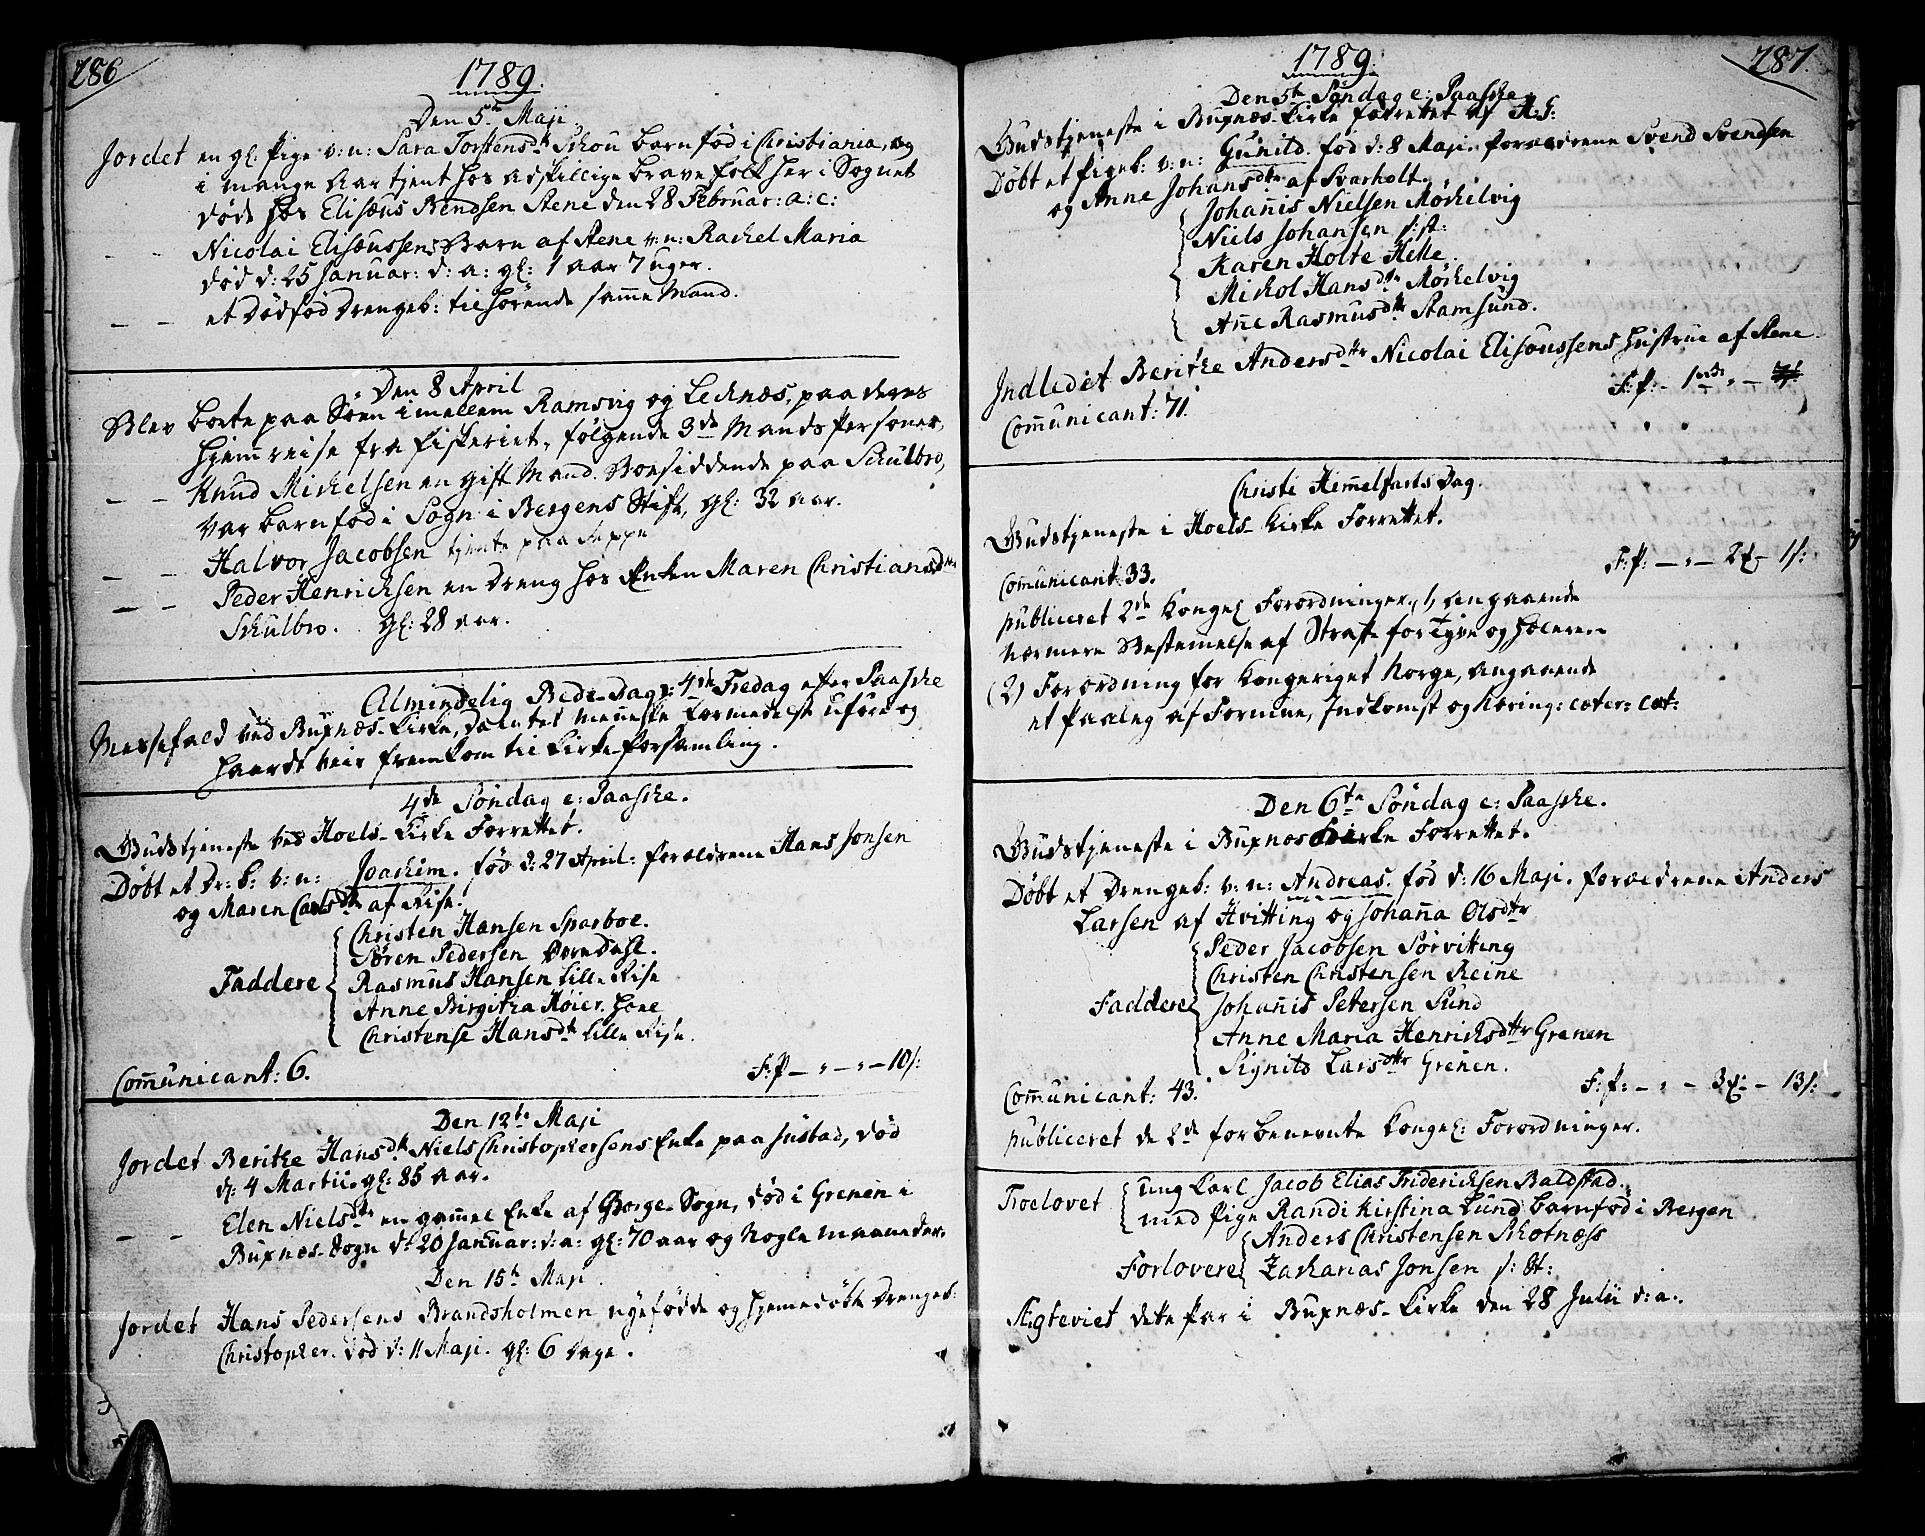 286
1789.
Den 5te Maji
Jordet en gl: Pige v: n: Sara Torstensdtr Schou barnfød i Christiania, og
i mange Aar tjent hos adskillige brave folk her i Sognet
døde hos Elisæus Bendsen Stene den 28 Februar: a: c:
— — Nicolai Elisæussens Barn af Stene v: n: Rachel Maria
død d: 25 Januar: d: a: gl: 1 aar 7 uger.
— — et Dødfød Drengeb: tilhørende samme Mand.
Den 8 April
Blev borte paa Søen imellem Ramsvig og Lechnæs, paa deres
hjemreise fra fiskeriet, følgende 3de Mands Personer,
— — Knud Michelsen en gift Mand. Boesiddende paa Schulbro,
var barnfød i Sogn i Bergens Stift, gl: 32 aar.
— — Halvor Jacobsen tjente paa Steppe
— — Peder Henrichsen en Dreng hos Enken Maren Christiansdtr
Schulbro. gl: 28 aar.
Almindelig Bede-Dag: 4de Fredag efter Paaske
Messefald ved Buxnæs-Kirke, da intet menneske formedelst uføre og
haardt veir fremkom til Kirke-forsamling.
4de Søndag e: Paaske.
Gudstjeneste ved Hoels-Kirke Forrettet.
Døbt et Dr: b: v: n: Joachim. fød d: 27 April: forældrene Hans Jonsen
og Maren Carlsdtr af Rise.
Christen Hansen Sparboe.
Søren Pedersen Dorndahl.
Faddere Rasmus Hansen Lille Rise
Anne Birgitha Høier. Hone
Christense Hansdtr Lille Rise.
Communicant: 6. F: P — " — " — 10 s:
Den 12te Maji
Jordet Berithe Hansdtr Niels Christophersens Enke paa Justad, død
d: 4 Martii. gl: 85 aar.
— — Elen Nielsdtr en gammel Enke af Borge-Sogn, død i Grenen i
Buxnæs-Sogn d: 20 Januar: d: a: gl: 70 aar og Nogle maaneder.
Den 15te Maji
Jordet Hans Pedersens Brandsholmen nyefødde og hjemedøbte Drengeb:
Christopher. død d: 11 Maji. gl: 6 dage.
287.
1789.
Den 5te Søndag e: Paaske
Gudstjeneste i Buxnæs-Kirke forrettet af H: H:
Døbt et Pigeb: v: n: Gunild. fød d: 8 Maji. forældrene Svend Svendsen
og Anne Johansdtr af Svarholt.
Johannis Nielsen Mørkelvig
Niels Johansen s: st:
Karen Holte Helle
Michol Hansdtr Mørkelvig
Anne Rasmusdtr Stamsund.
Indledet Berithe Andersdtr Nicolai Elisæussens hustrue af Stene
Communicant: 71. F: P: — 1 — " —
Christi Himmelfarts Dag.
Gudstjeneste i Hoels-Kirke Forrettet.
Communicant: 33. F: P: — " — 2 — 1 s:
publiceret 2de Kongel: Forordninger, 1, angaaende
Nærmere Bestemmelse af Straf for Tyve og hælere.
(2) Forordning for Kongeriget Norge, angaaende
et Paaleg af Formue, Indkomst og Næring: cæter: cæt:
Den 6te Søndag e: Paaske.
Gudstjeneste i Buxnæs Kirke Forrettet.
Døbt et Drengeb: v: n: Andreas. fød d: 16 Maji. forældrene Anders
Larsen af Hvitting og Johanna Olsdtr
Peder Jacobsen Sørvitting
Christen Christensen Reine
Faddere Johannis Petersen Sund
Anne Maria Henrichsdtr Grenen
Signild Larsdtr Grenen.
Communicant: 43. F: P: — " — 3 — 13 s:
publiceret de 2de forbenevnte Kongel: Forordninger.
Troelovet ung Karl Jacob Elias Friderichsen Baldstad.
med Pige Randi Kirstina Lund barnfød i Bergen
Anders Christensen Schotnæss
Forlovere Zacharias Jonsen s: St:
Ægteviet dette Par i Buxnæs-Kirke den 28 Julii d: a:.